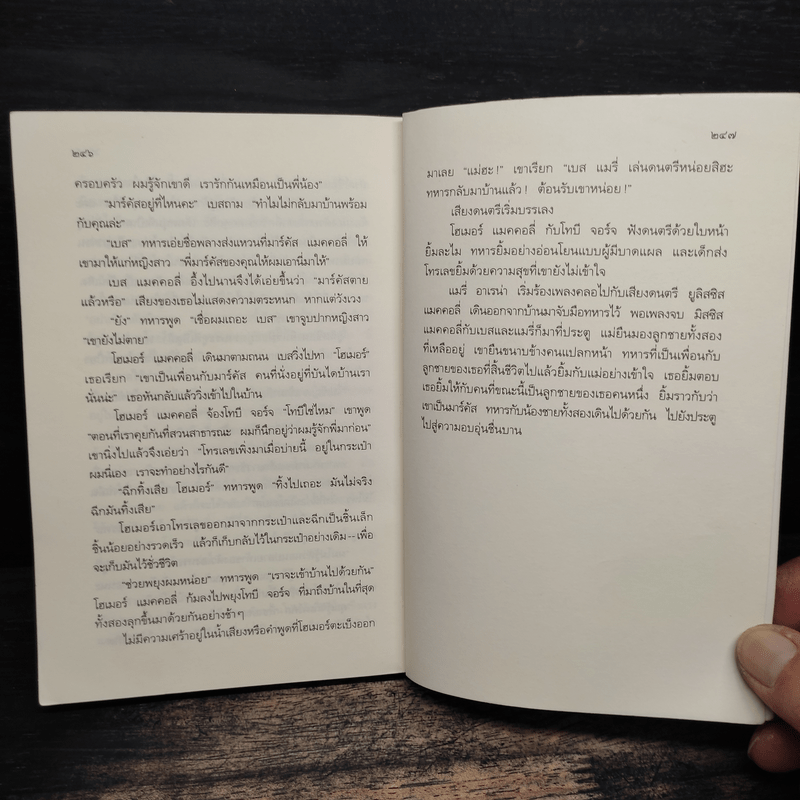 ๒๔๖
ครอบครัว ผมรู้จักเขาดี เรารักกันเหมือนเป็นพี่น้อง"
"มาร์คัสอยู่ที่ไหนคะ" เบสถาม "ทำไมไม่กลับมาบ้านพร้อม
กับคุณล่ะ"
"เบส" ทหารเอ่ยชื่อพลางส่งแหวนที่มาร์คัส แมคคอลี่ ให้
เขามาให้แก่หญิงสาว "พี่มาร์คัสของคุณให้ผมเอานี่มาให้"
เบส แมคคอลี่ อึ้งไปนานจึงได้เอ่ยขึ้นว่า "มาร์คัสตาย
แล้วหรือ" เสียงของเธอไม่แสดงความตระหนก หากแต่วังเวง
"ยัง" ทหารพูด "เชื่อผมเถอะ เบส" เขาจูบปากหญิงสาว
"เขายังไม่ตาย"
โฮเมอร์ แมคคอลี่ เดินมาตามถนน เบสวิ่งไปหา "โฮเมอร์"
เธอเรียก "เขาเป็นเพื่อนกับมาร์คัส คนที่นั่งอยู่ที่บันไดบ้านเรา
นั่นน่ะ" เธอหันกลับแล้ววิ่งเข้าไปในบ้าน
โฮเมอร์ แมคคอลี่ จ้องโทบี จอร์จ "โทบีใช่ไหม" เขาพูด
"ตอนที่เราคุยกันที่สวนสาธารณะ ผมก็นึกอยู่ว่าผมรู้จักพี่มาก่อน"
เขานิ่งไปแล้วจึงเอ่ยว่า "โทรเลขเพิ่งมาเมื่อบ่ายนี้ อยู่ในกระเป๋า
ผมนี่เอง เราจะทำอย่างไรกันดี"
"ฉีกทิ้งเสีย โฮเมอร์" ทหารพูด "ทิ้งไปเถอะ มันไม่จริง
ฉีกมันทิ้งเสีย"
โฮเมอร์เอาโทรเลขออกมาจากกระเป๋าและฉีกเป็นชิ้นเล็ก
ชิ้นน้อยอย่างรวดเร็ว แล้วก็เก็บกลับไว้ในกระเป๋าอย่างเดิม--เพื่อ
จะเก็บมันไว้ชั่วชีวิต
"ช่วยพยุงผมหน่อย" ทหารพูด "เราจะเข้าบ้านไปด้วยกัน"
โฮเมอร์ แมคคอลี่ ก้มลงไปพยุงโทบี จอร์จ ที่มาถึงบ้านในที่สุด
ทั้งสองลุกขึ้นมาด้วยกันอย่างช้าๆ
ไม่มีความเศร้าอยู่ในน้ำเสียงหรือคำพูดที่โฮเมอร์ตะเบ็งออก
๒๔๗
มาเลย "แม่ฮะ!" เขาเรียก "เบส แมรี่ เล่นดนตรีหน่อยสิฮะ
ทหารกลับมาบ้านแล้ว! ต้อนรับเขาหน่อย!"
เสียงดนตรีเริ่มบรรเลง
โฮเมอร์ แมคคอลี่ กับโทบี จอร์จ ฟังดนตรีด้วยใบหน้า
ยิ้มละไม ทหารยิ้มอย่างอ่อนโยนแบบผู้มีบาดแผล และเด็กส่ง
โทรเลขยิ้มด้วยความสุขที่เขายังไม่เข้าใจ
แมรี่ อาเรน่า เริ่มร้องเพลงคลอไปกับเสียงดนตรี ยูลิสซิส
แมคคอลี่ เดินออกจากบ้านมาจับมือทหารไว้ พอเพลงจบ มิสซิส
แมคคอลี่กับเบสและแมรี่ก็มาที่ประตู แม่ยืนมองลูกชายทั้งสอง
ที่เหลืออยู่ เขายืนขนาบข้างคนแปลกหน้า ทหารที่เป็นเพื่อนกับ
ลูกชายของเธอที่สิ้นชีวิตไปแล้วยิ้มกับแม่อย่างเข้าใจ เธอยิ้มตอบ
เธอยิ้มให้กับคนที่ขณะนี้เป็นลูกชายของเธอคนหนึ่ง ยิ้มราวกับว่า
เขาเป็นมาร์คัส ทหารกับน้องชายทั้งสองเดินไปด้วยกัน ไปยังประตู
ไปสู่ความอบอุ่นชื่นบาน